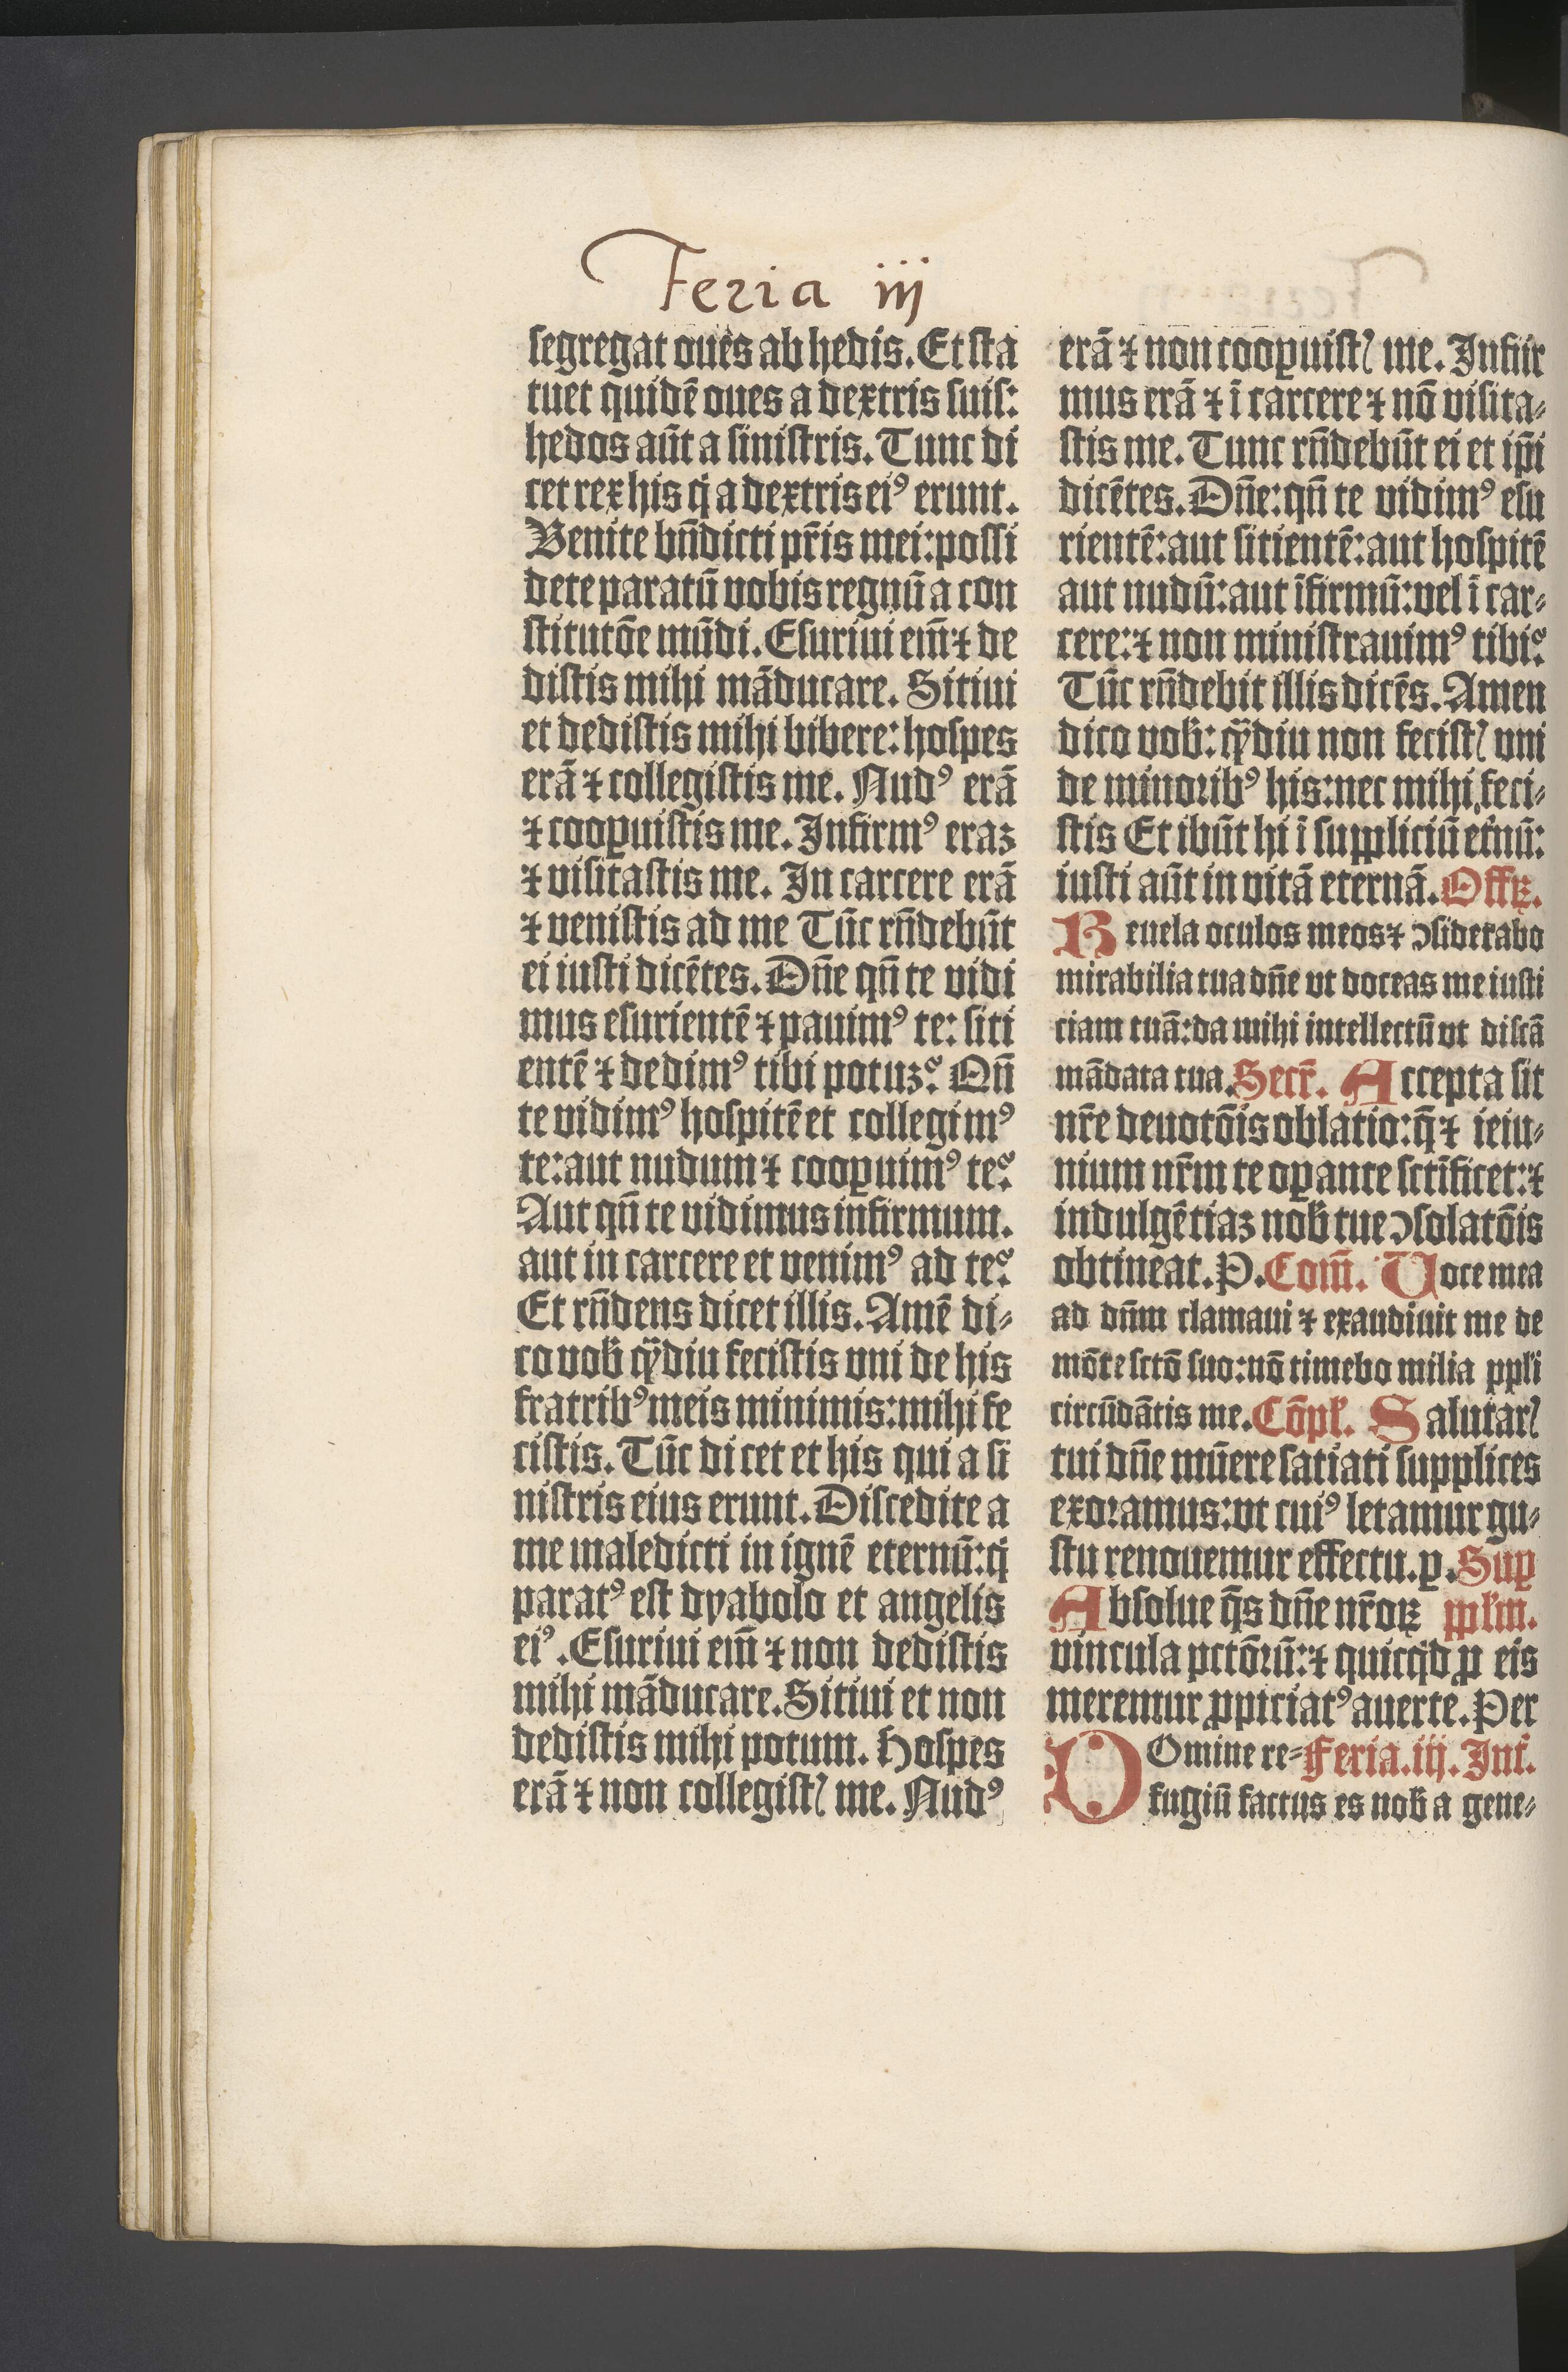 Feria iij
segregat oues ab hedis. Et sta
tuet quidē oues a dextris suis:
hedos aūt a sinistris. Tunc di
cet rex his q̇ a dextris eiꝰ erunt.
Benite bn̄dicti pr̄is mei: possi
dete paratū vobis regnū a con
stitutōe mūdi. Esuriui em̄ ⁊ de
distis mihi māducare. Sitiui
et dedistis mihi bibere: hospes
erā ⁊ collegistis me. Nudꝰ erā
⁊ cooꝑuistis me. Infirmꝰ eraz
⁊ visitastis me. In carcere erā
⁊ venistis ad me Tūc rn̄debūt
ei iusti dicētes. Dn̄e qn̄ te vidi
mus esurientē ⁊ pauimꝰ te: siti
entē ⁊ dedimꝰ tibi potuz? Qn̄
te vidimꝰ hospitē et collegimꝰ
te: aut nudum ⁊ cooꝑuimꝰ te?
Aut qn̄ te vidimus infirmum.
aut in carcere et venimꝰ ad te?
Et rn̄dens dicet illis. Amē di⸗
co vob̄ qͣ̄diu fecistis vni de his
fratribꝰ meis minimis: mihi fe
cistis. Tūc dicet et his qui a si
nistris eius erunt. Discedite a
me maledicti in ignē eternū: q̇
paratꝰ est dyabolo et angelis
eiꝰ. Esuriui em̄ ⁊ non dedistis
mihi māducare. Sitiui et non
dedistis mihi potum. Hospes
erā ⁊ non collegistꝭ me. Nudꝰ
erā ⁊ non cooꝑuistꝭ me. Infir
mus erā ⁊ ī carcere ⁊ nō visita⸗
stis me. Tunc rn̄debūt ei et ip̄i
dicētes. Dn̄e: qn̄ te vidimꝰ esu
rientē: aut sitientē: aut hospitē
aut nudū: aut īfirmū: vel ī car⸗
cere: ⁊ non ministrauimꝰ tibi?
Tūc rn̄debit illis dicēs. Amen
dico vob̄: qͣ̄diu non fecistꝭ vni
de minoribꝰ his: nec mihi feci⸗
stis Et ibūt hi ī suppliciū et̄nū:
iusti aūt in vitā eternā. Offꝝ.
Reuela oculos meos ⁊ ↄsiderabo
mirabilia tua dn̄e vt doceas me iusti
ciam tuā: da mihi intellectū vt discā
mādata tua. Secr̄. Accepta sit
nr̄e deuotōis oblatio: q̄ ⁊ ieiu⸗
nium nr̄m te oꝑante sctīficet: ⁊
indulgētiaz nob̄ tue ↄsolatōis
obtineat. P. Com̄. Voce mea
ad dn̄m clamaui ⁊ exaudiuit me de
mōte sctō suo: nō timebo milia ppl̄i
circūdātis me. Cōpl̄. Salutarꝭ
tui dn̄e mūere satiati supplices
exoramus: vt cuiꝰ letamur gu⸗
stu renouemur effectu. p. Suꝑ
Absolue q̄s dn̄e nr̄oꝝ ppl̄m.
vincula pctōrū: ⁊ quicq̇d ꝓ eis
merentur ꝓpiciatꝰ auerte. Per
DOmine re⸗ Feria.iij. Int̄.
fugiū factus es nob̄ a gene⸗